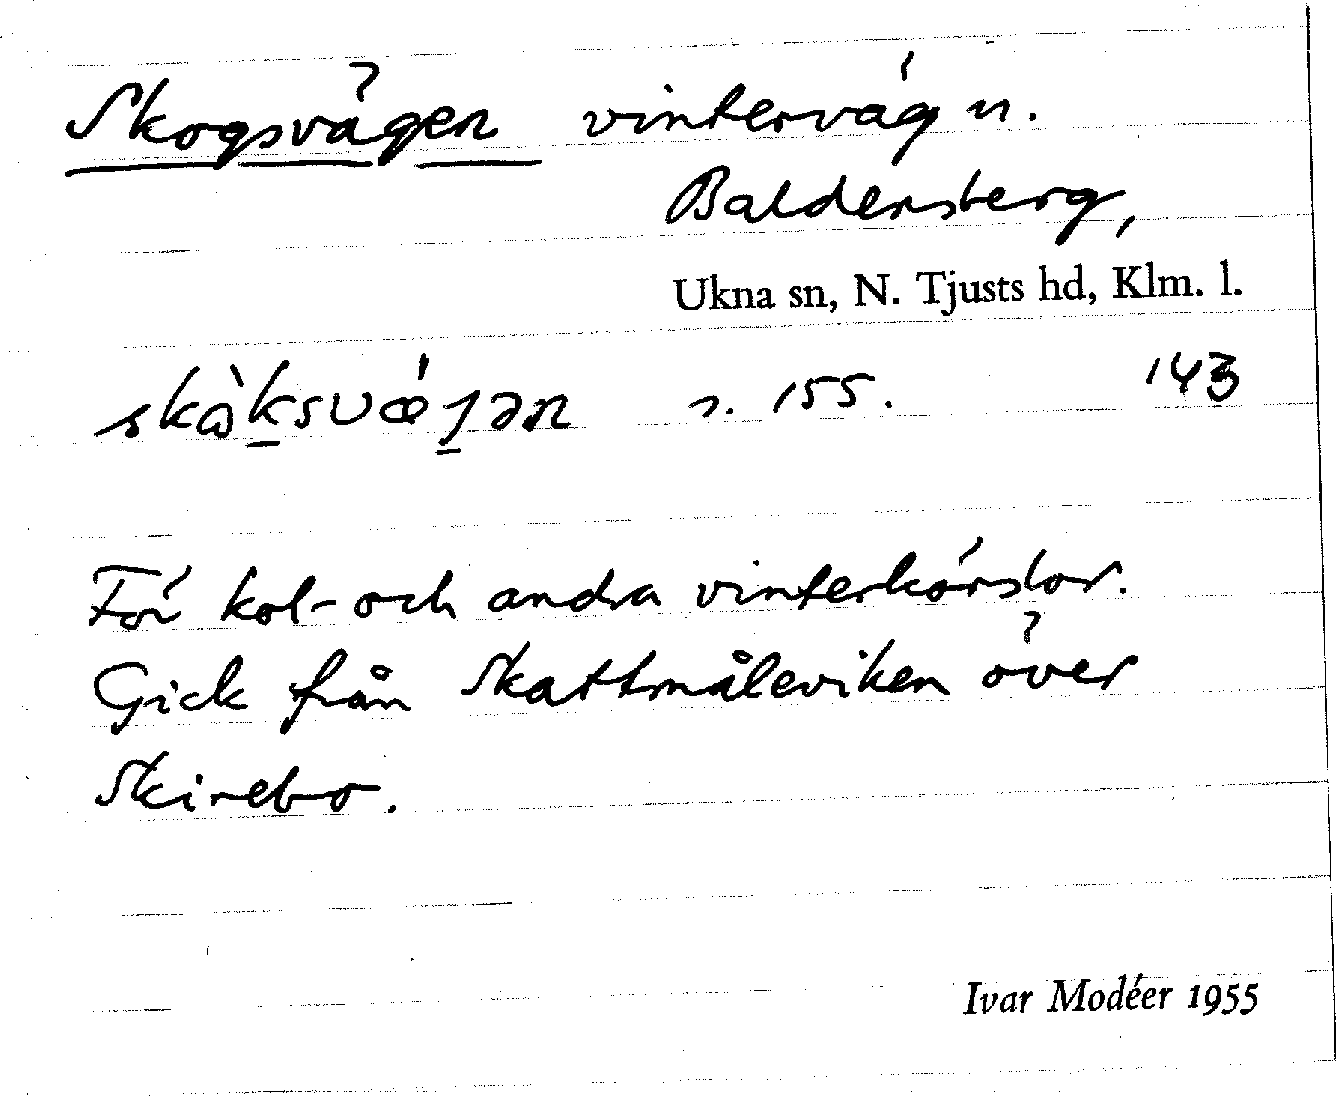 Skogsvägen vinterväg n.
Baldersberg,
Ukna sn, N. Tjusts hd, Klm. l.
s. 155. 143
För kol- och andra vinterkörslor.
Gick från Skattmåleviken över
Skirebo.
Ivar Modéer 1955